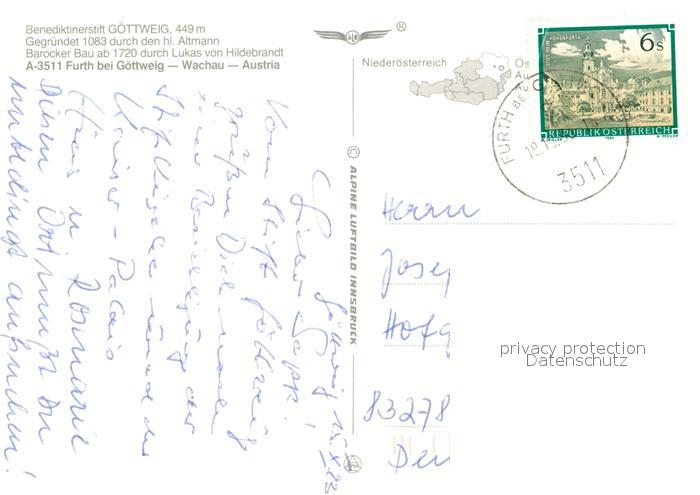 Benediktinerstift GÖTTWEIG, 449 m
Gegründet 1083 durch den hl. Altmann
Barocker Bau ab 1720 durch Lukas von Hildebrandt
A-3511 Furth bei Göttweig — Wachau — Austria
®
Niederösterreich
Ös
Au
Au
6 S
STIFT REIN-HOHENFURTH
REPUBLIK ÖSTERREICH
FURTH BEI G
3511
© ALPINE LUFTBILD INNSBRUCK
Göttweig
Lieber Sepp!
Vom Stift Göttweig
grüßen Dich nach
einer Besichtigung der
Stiftskirche und der
Kaiser-Palais
Hans u Rosmarie
Diesen Ort mußt Du
unbedingt aufsuchen!
Herrn
Josef
Hofg
83278
privacy protection
Datenschutz